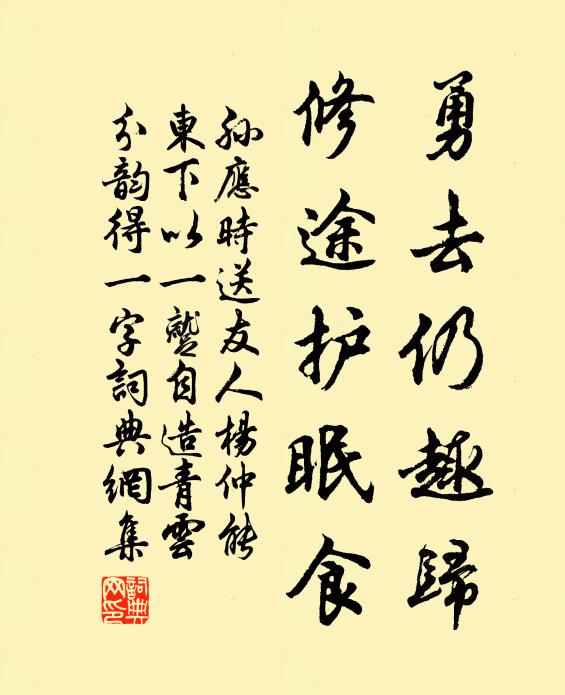 勇去仍趣歸
修途护眠食
孙應時送友人楊仲能
東下以一蹔自造青雲
分韵得一字詞典網集
詞典網印